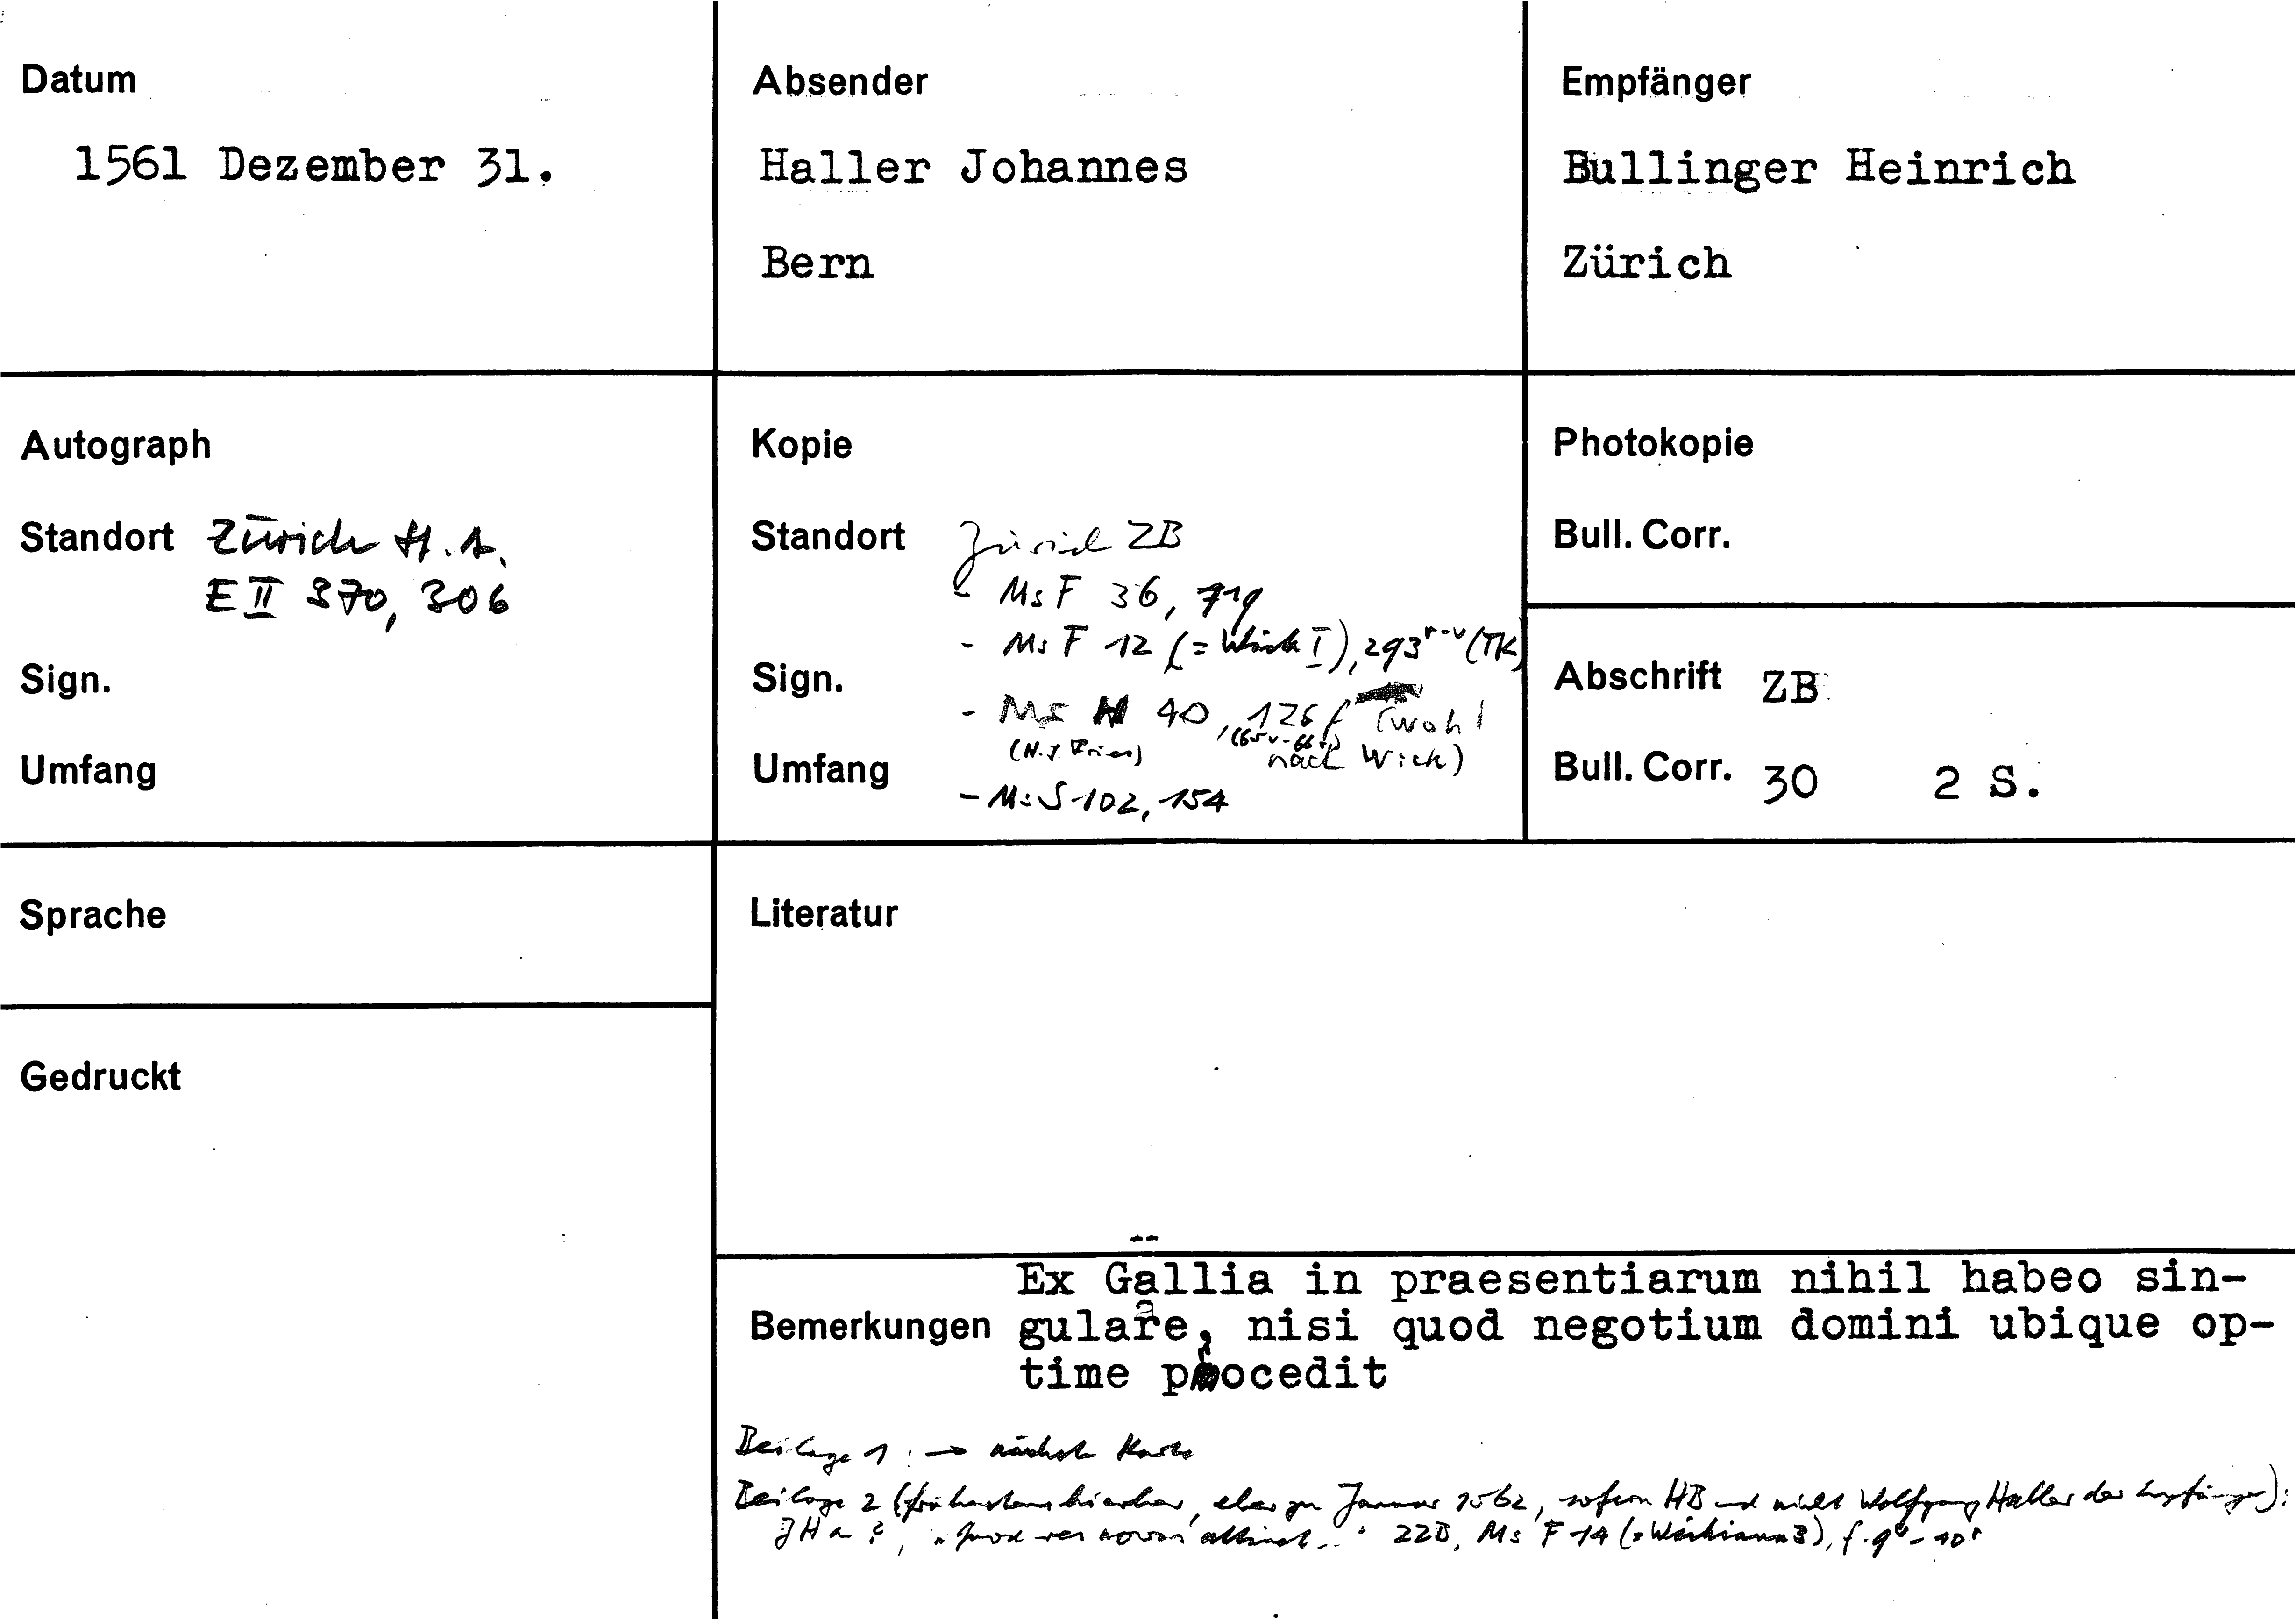 Datum
1561 Dezember 31.
Absender
Haller Johannes
Bern
Empfänger
Bullinger Heinrich
Zürich
Autograph
Standort Zürich H.A.
E II 370, 306
Sign.
Umfang
Kopie
Standort Zürich ZB
- Ms F 36, 719
- Ms F 12 (= Wick I), 293r-v (TK)
Sign.
- Ms H 40, 126 f (wohl
(H. J. Fries) (65v-66r) nach Wick)
Umfang
- Ms S 102, 154
Photokopie
Bull. Corr.
Abschrift ZB
Bull. Corr. 30 2 S.
Sprache
Literatur
Gedruckt
Ex Gallia in praesentiarum nihil habeo sin-
Bemerkungen gulare, nisi quod negotium domini ubique op-
time procedit
Beilage 1: → nächste Karte
Beilage 2 (frühestens hierher, eher zu Januar 1562, sofern HB und nicht Wolfgang Haller der Empfänger):
JH a ?, "Quod res novas attinet..." ZZB, Ms F 14 (= Wickiana 3), f. 9v-10r